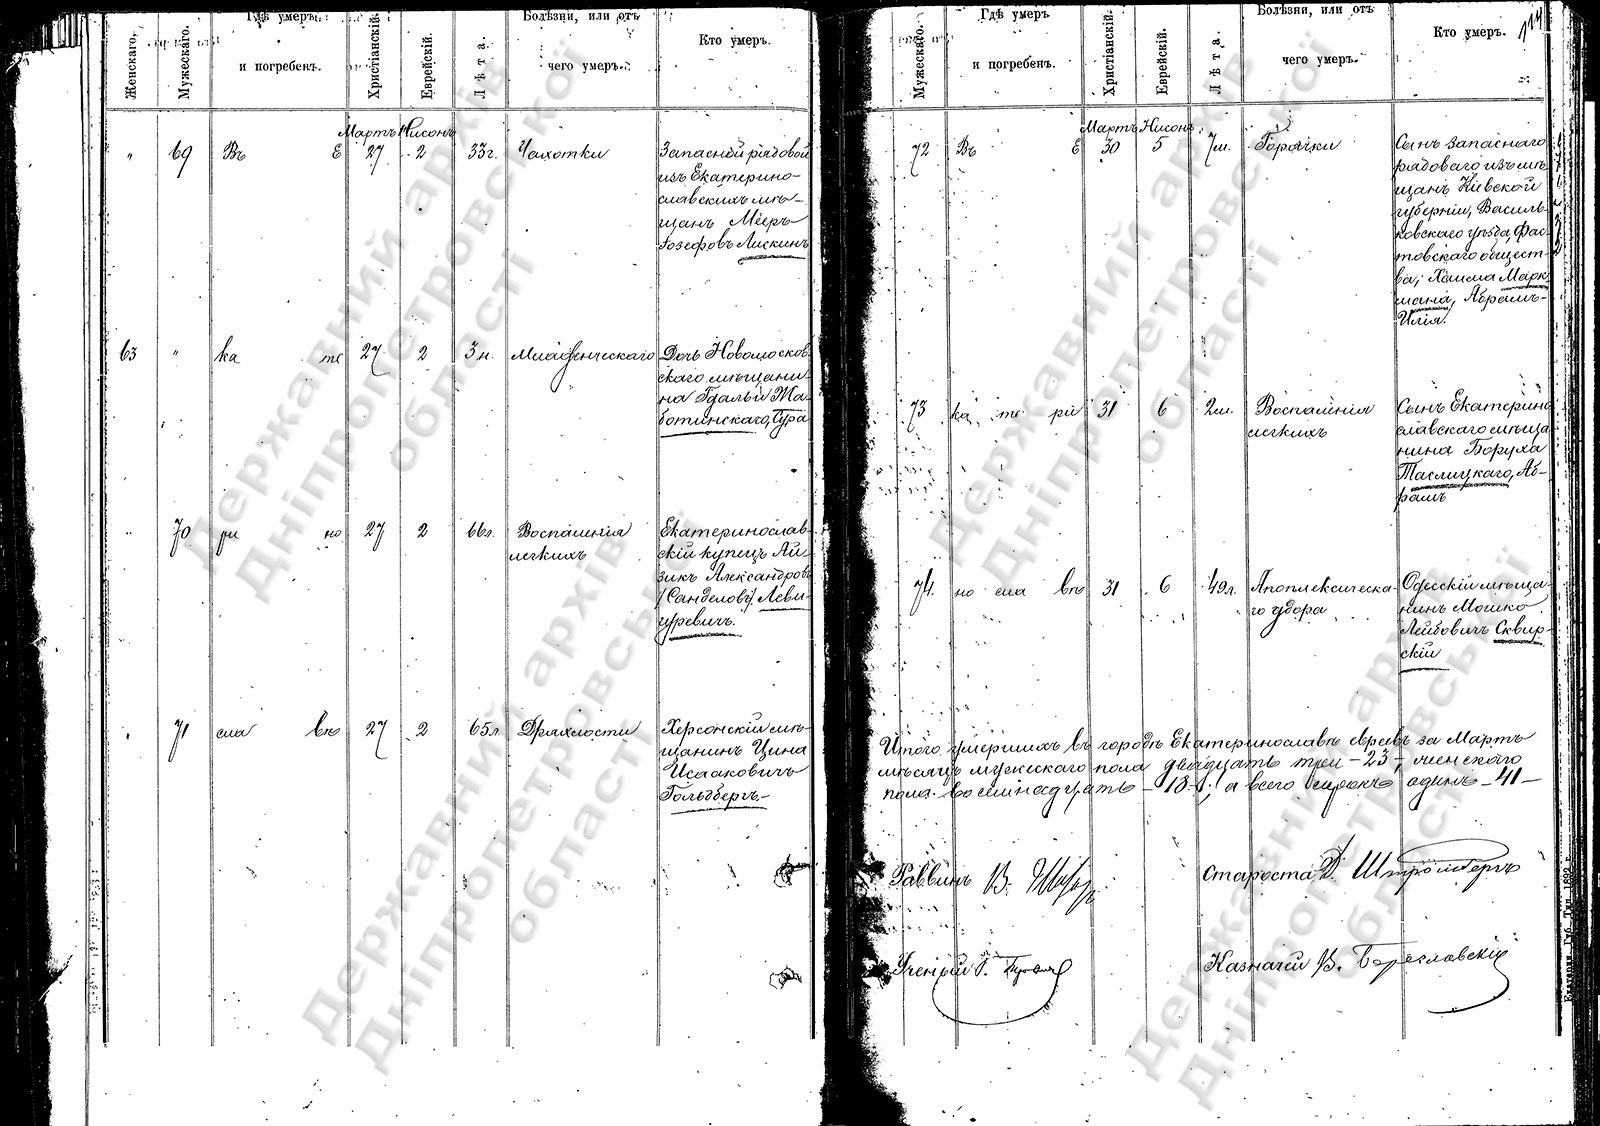 Женскаго.
Мужескаго.
Гдѣ умеръ
и погребенъ.
Христіанскій.
Еврейскій.
Лѣта.
Болѣзни, или отъ
чего умеръ.
Кто умеръ.
Мартъ Нисонъ
„ 69 Въ Е 27 2 33 г. Чахотки
Запасной рядовой
изъ Екатерино-
славскихъ мѣ-
щанъ Мееръ
Іозефовъ Лискинъ
63 „ ка те 27 2 3 н. Младенческаго
Дочь Новомосков-
скаго мѣщани-
на Гдальи Жа-
ботинскаго, Сура
„ 70 ри но 27 2 66 л. Воспаленія
легкихъ
Екатеринослав-
скій купецъ Ай-
зикъ Александровъ
(Санделовъ) Леви-
71 сла вѣ 27 2 65 л. Дряхлости
Херсонскій мѣ-
щанинъ
Исааковичъ
Гольдбергъ.
114
Мужескаго.
Гдѣ умеръ
и погребенъ.
Христіанскій.
Еврейскій.
Лѣта.
Болѣзни, или отъ
чего умеръ.
Кто умеръ.
Мартъ Нисонъ
72 Въ Е 30 5 7 м. Горячки
Сынъ запаснаго
рядоваго изъ мѣ-
щанъ Кіевской
губерніи, Василь-
ковскаго уѣзда, Фас-
товскаго общест-
ва, Хаима Марк-
мана, Абрамъ-
Илія.
73 ка те ри 31 6 2 м. Воспаленія
легкихъ
Сынъ Екатерино-
славскаго мѣща-
нина Боруха
Таслицкаго, Аб-
рамъ
74. но сла вѣ 31 6 49 л. Апоплексическа-
го удара
Одесскій мѣща-
нинъ Мошко
Лейбовичъ Сквир-
скій
Итого умершихъ въ городѣ Екатеринославѣ евреевъ за Мартъ
мѣсяцъ мужескаго пола двадцать три – 23 –, женскаго
пола восемнадцать – 18 –, а всего сорокъ одинъ – 41 –
Раввинъ В.
Староста Д. Штромбергъ
Ученый Г.
Казначей В. Береславскій
Державний архів
Дніпропетровської
області